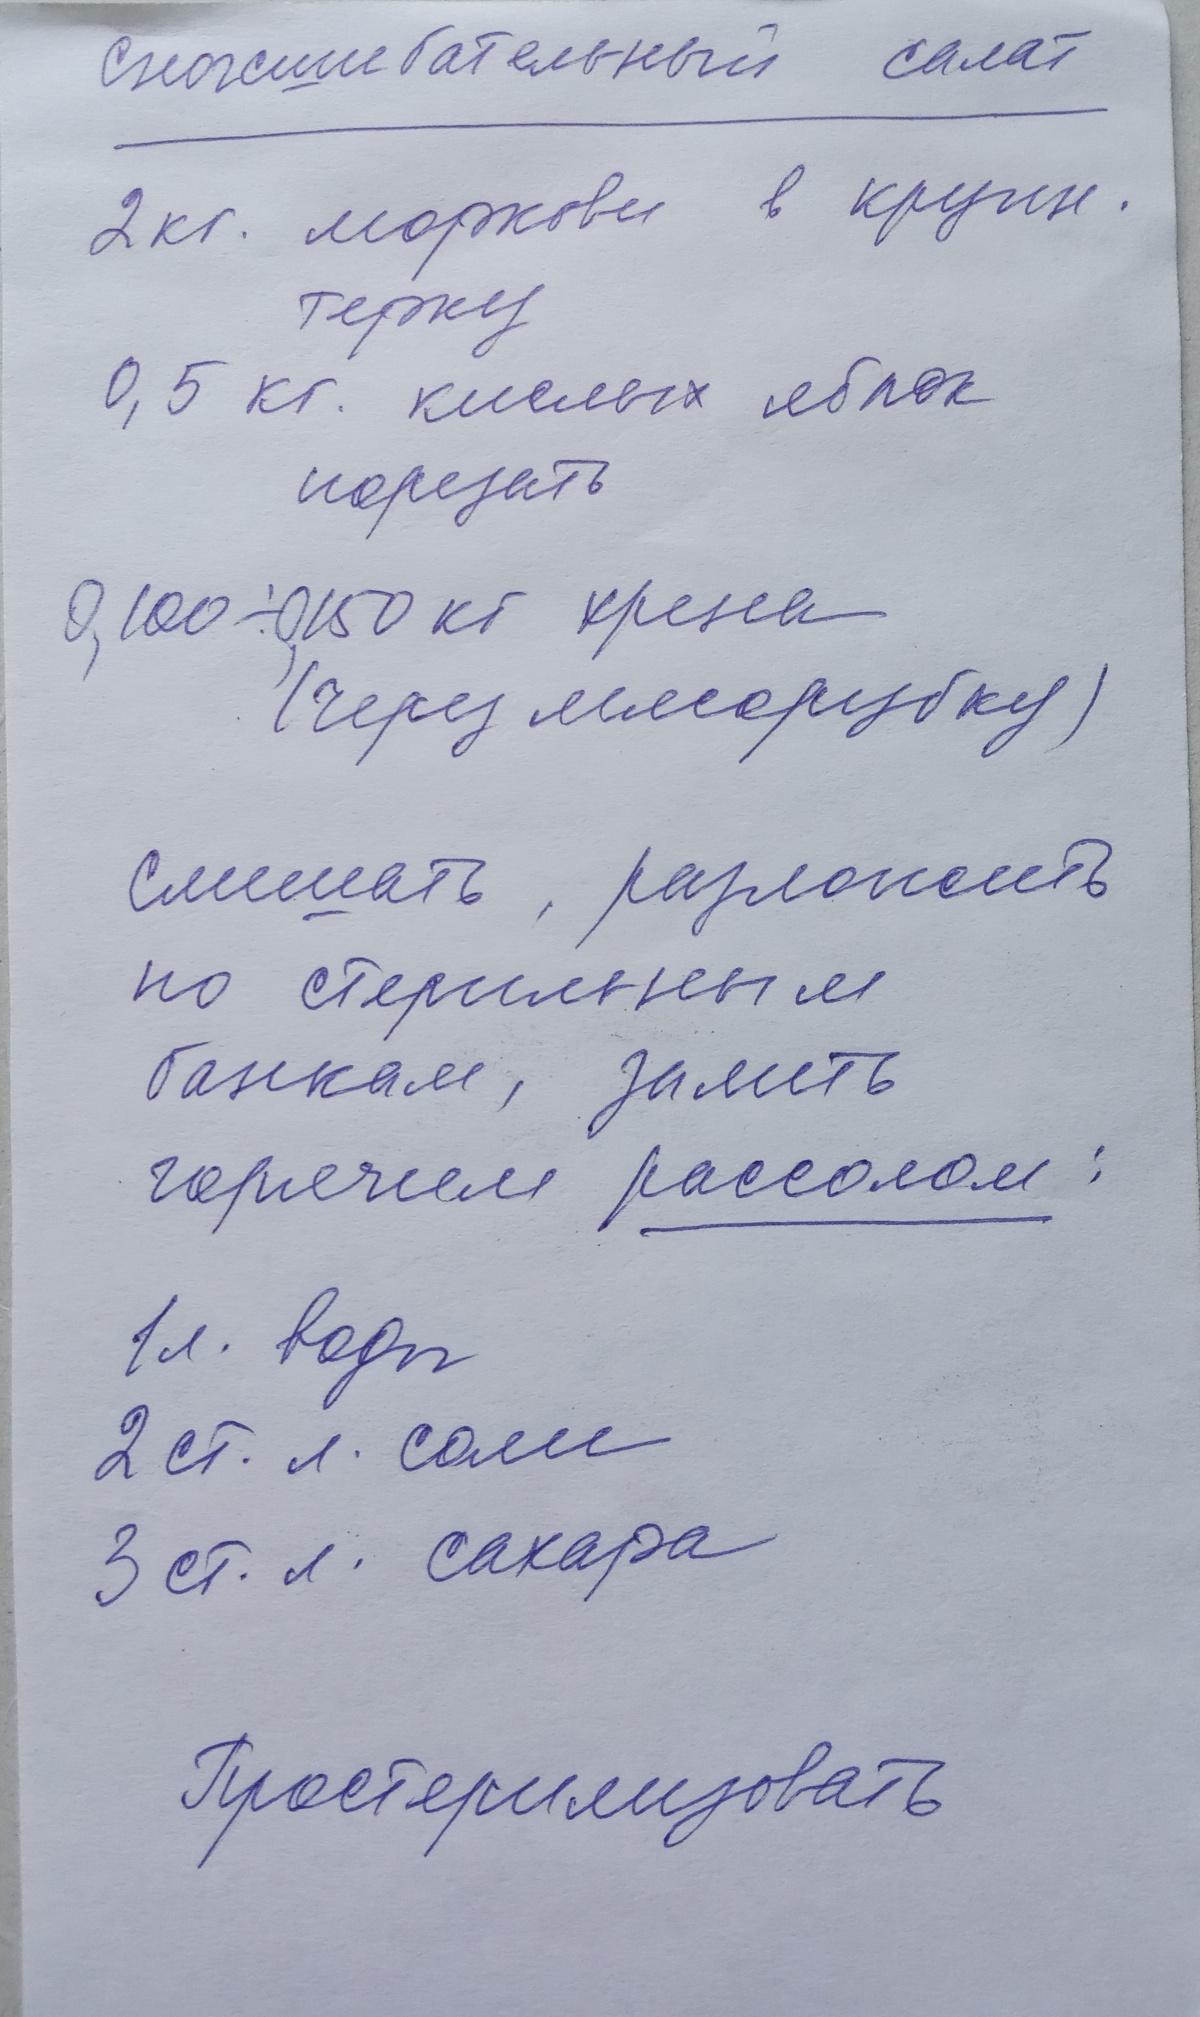 сногсшибательный салат
2 кг. моркови в крупн.
терку
0,5 кг. кислых яблок
порезать
0,100÷0,150 кг хрена
(через мясорубку)
смешать, разложить
по стерильным
банкам, залить
горячим рассолом:
1 л. воды
2 ст. л. соли
3 ст. л. сахара
Простерилизовать